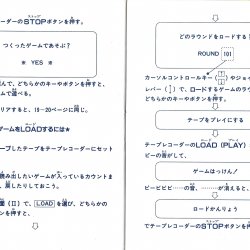 ストップ
コーダーのSTOPボタンを押す。
つくったゲームであそぶ?
※ YES ※
んで、どちらかのキーやボタンを押すと、
ームで遊べる。
リアすると、18-20ページに同じ。
ロード
ゲームをLOADするには★
ープしたテープをテープレコーダーにセット
読み出したいゲームが入っているカウントま
、戻したりしておこう。
ロード
面(Ⅱ)で、LOADを選び、どちらかの
ボタンを押す。
どのラウンドをロードする?
ROUND 101
カーソルコントロールキー(↑↓)やジョイ
レバー(↑↓)で、ロードするゲームのラ
どちらかのキーやボタンを押す。
テープをプレイにする
ロード プレイ
テープレコーダーのLOAD(PLAY)
ピーの音がして、
ゲームはっけん!
ピーピピピ……の音、……が消えると、
ロードかんりょう
ストップ
でテープレコーダーのSTOPボタンを押す